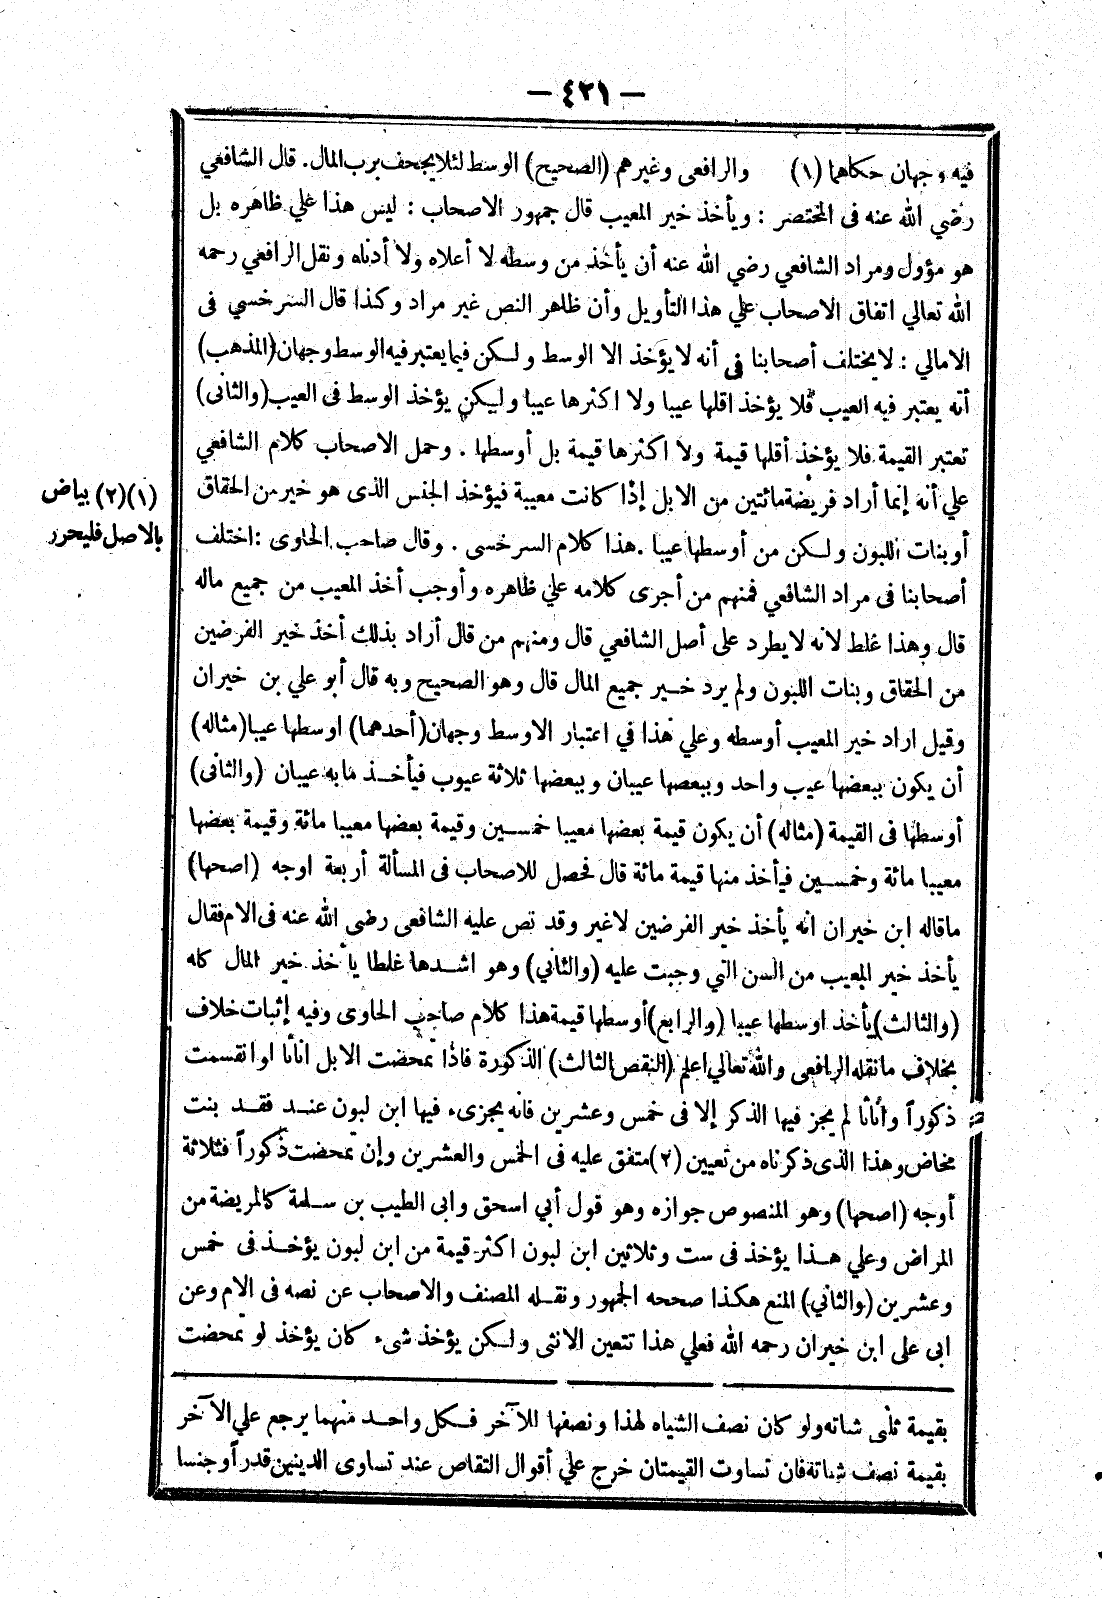 — ٤٢١ —
فيه وجهان حكاهما (١) والرافعى وغيرهم (الصحيح) الوسط لئلا يجحف برب المال. قال الشافعي
رضي الله عنه فى المختصر : ويأخذ خير المعيب قال جمهور الاصحاب : ليس هذا علي ظاهره بل
هو مؤول ومراد الشافعي رضي الله عنه أن يأخذ من وسطه لا أعلاه ولا أدناه ونقل الرافعي رحمه
الله تعالي اتفاق الاصحاب علي هذا التأويل وأن ظاهر النص غير مراد وكذا قال السرخسي فى
الامالي : لا يختلف أصحابنا في أنه لا يؤخذ الا الوسط ولكن فيما يعتبر فيه الوسط وجهان (المذهب)
أنه يعتبر فيه العيب فلا يؤخذ اقلها عيبا ولا اكثرها عيبا وليكن يؤخذ الوسط فى العيب (والثانى)
تعتبر القيمة فلا يؤخذ أقلها قيمة ولا اكثرها قيمة بل أوسطها . وحمل الاصحاب كلام الشافعي
علي أنه إنما أراد فريضة مائتين من الابل إذا كانت معيبة فيؤخذ الجنس الذى هو خير من الحقاق
أو بنات اللبون ولكن من أوسطها عيبا . هذا كلام السرخسى . وقال صاحب الحاوى : اختلف
أصحابنا فى مراد الشافعي فمنهم من أجرى كلامه علي ظاهره وأوجب أخذ المعيب من جميع ماله
قال وهذا غلط لانه لا يطرد على أصل الشافعي قال ومنهم من قال أراد بذلك أخذ خير الفرضين
من الحقاق وبنات اللبون ولم يرد خير جميع المال قال وهو الصحيح وبه قال أبو علي بن خيران
وقيل اراد خير المعيب أوسطه وعلي هذا في اعتبار الاوسط وجهان (أحدهما) اوسطها عيبا (مثاله)
أن يكون ببعضها عيب واحد وببعصها عيبان وببعضها ثلاثة عيوب فيأخذ مابه عيبان (والثانى)
أوسطها فى القيمة (مثاله) أن يكون قيمة بعضها معيبا خمسين وقيمة بعضها معيبا مائة وقيمة بعضها
معيبا مائة وخمسين فيأخذ منها قيمة مائة قال فحصل للاصحاب فى المسألة أربعة اوجه (اصحها)
ماقاله ابن خيران انه يأخذ خير الفرضين لاغير وقد نص عليه الشافعى رضى الله عنه فى الام فقال
يأخذ خير المعيب من السن التي وجبت عليه (والثاني) وهو اشدها غلطا يأخذ خير المال كله
(والثالث) يأخذ اوسطها عيبا (والرابع) أوسطها قيمة هذا كلام صاحب الحاوى وفيه إثبات خلاف
بخلاف مانقله الرافعى والله تعالي اعلم (النقص الثالث) الذكورة فاذا تمحضت الابل اناثا او انقسمت
ذكوراً وأناثا لم يجز فيها الذكر إلا فى خمس وعشرين فانه يجزىء فيها ابن لبون عند فقد بنت
مخاض وهذا الذى ذكرناه من تعيين (٢) متفق عليه فى الخمس والعشرين وإن تمحضت ذكوراً فثلاثة
أوجه (اصحها) وهو المنصوص جوازه وهو قول أبي اسحق وابى الطيب بن سلمة كالمريضة من
المراض وعلي هذا يؤخذ فى ست وثلاثين ابن لبون اكثر قيمة من ابن لبون يؤخذ فى خمس
وعشرين (والثاني) المنع هكذا صححه الجمهور ونقله المصنف والاصحاب عن نصه فى الام وعن
ابى على ابن خيران رحمه الله فعلي هذا تتعين الانثى ولكن يؤخذ شىء كان يؤخذ لو تمحضت
(١)(٢) بياض
بالاصل فليحرر
بقيمة ثلثى شاته ولو كان نصف الشياه لهذا ونصفها للآخر فكل واحد منهما يرجع علي الآخر
بقيمة نصف شاته فان تساوت القيمتان خرج علي أقوال التقاص عند تساوى الدينين قدراً وجنسا